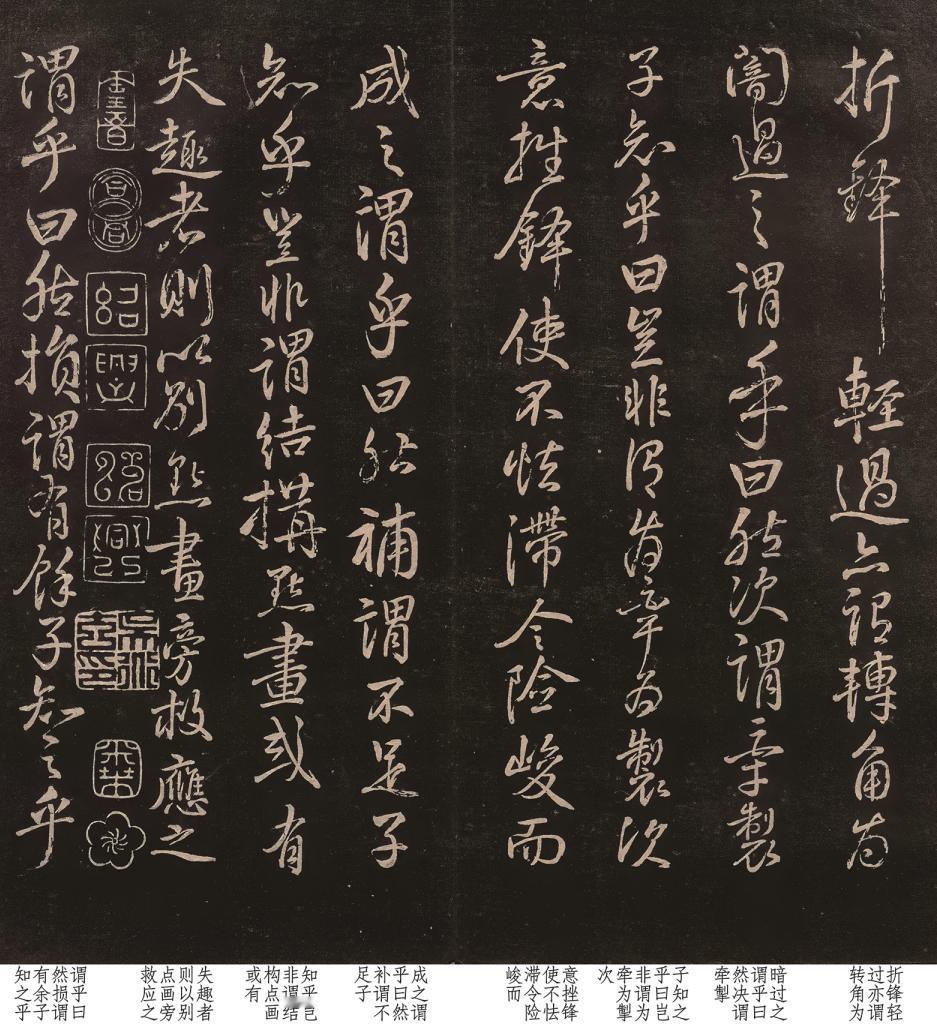 折鋒輕過亦謂轉角為
闇過之謂乎曰然次謂牽製
子知乎曰豈非謂為牽為製次
意挫鋒使不怯滯令險峻而
成之謂乎曰然補謂不足子
知乎豈非謂結構點畫或有
失趣者則以別點畫旁救應之
紹興
紹興
謂乎曰然損謂有餘子知之乎
折锋轻
过亦谓
转角为
暗过之
谓乎曰
然决谓
牵掣
子知之
乎曰岂
非谓为
牵为掣
次
意挫锋
使不怯
滞令险
峻而
成之谓
乎曰然
补谓不
足子
知乎岂
非谓结
构点画
或有
失趣者
则以别
点画旁
救应之
谓乎曰
然损谓
有余子
知之乎